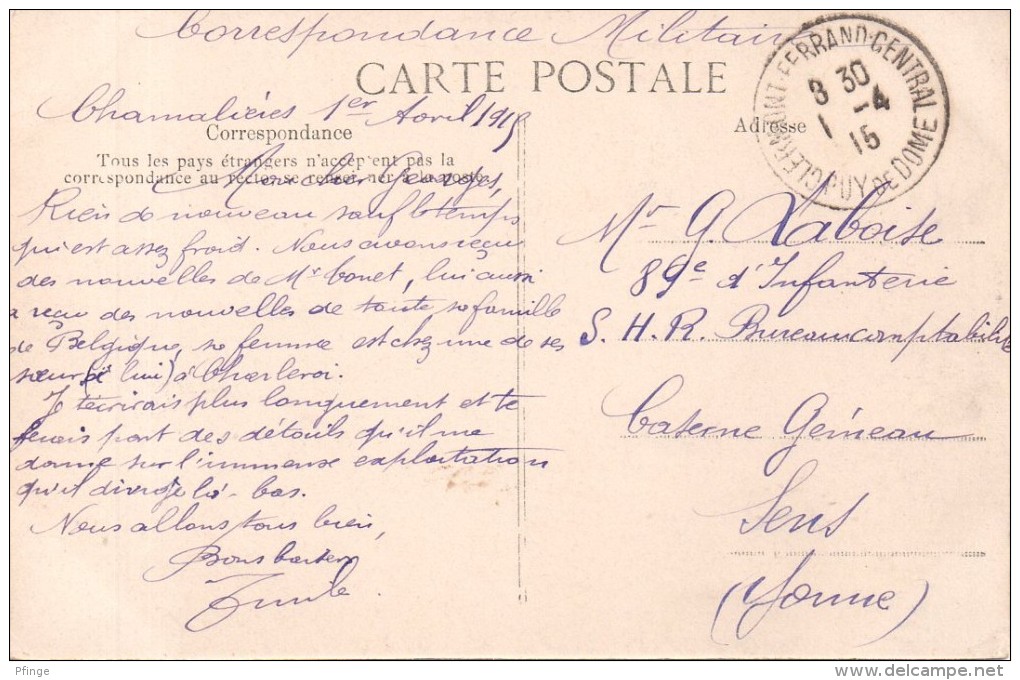 Correspondance Militaire
CARTE POSTALE
Chamalières 1er Avril 1915
Correspondance
Tous les pays étrangers n'acceptent pas la
correspondance au recto, se renseigner à la poste.
Mon cher Georges,
Rien de nouveau sauf le temps
qui est assez froid. Nous avons reçu
des nouvelles de Mr Conet, lui aussi
a reçu des nouvelles de toute sa famille
de Belgique, sa femme est chez une de ses
sœur (à lui) à Charleroi.
Je t'écrirais plus longuement et te
ferais part des détails qu'il me
donne sur l'immense exploitation
qu'il dirige là-bas.
Nous allons tous bien,
Bons baisers
CLERMONT-FERRAND-CENTRAL
8 30
1 -4
15
PUY DE DOME
Adresse
Mr G. Laboise
89e d'Infanterie
S. H. R. Bureau comptabilité
Caserne Gémeau
Sens
(Yonne)
Pfinge
www.delcampe.net